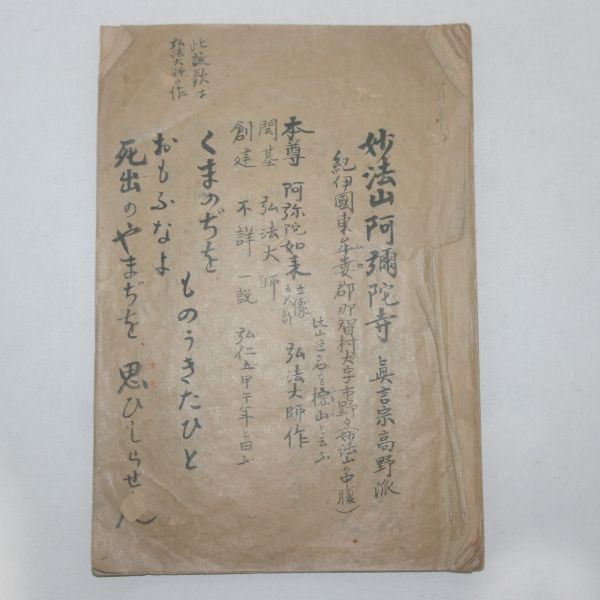 妙法山阿彌陀寺 眞言宗高野派
紀伊國東牟婁郡那智村大字市野々(妙法山の中腹)
此山ニ一名を 山と云ふ
本尊 阿弥陀如来 立像 五尺許 弘法大師作
開基 弘法大師
創建 不詳 一説 弘仁五甲午年と曰ふ
くまのぢを
ものうきたひと
おもふなよ
死出のやまぢを、思ひしらせん
此詠歌は
弘法大師の作